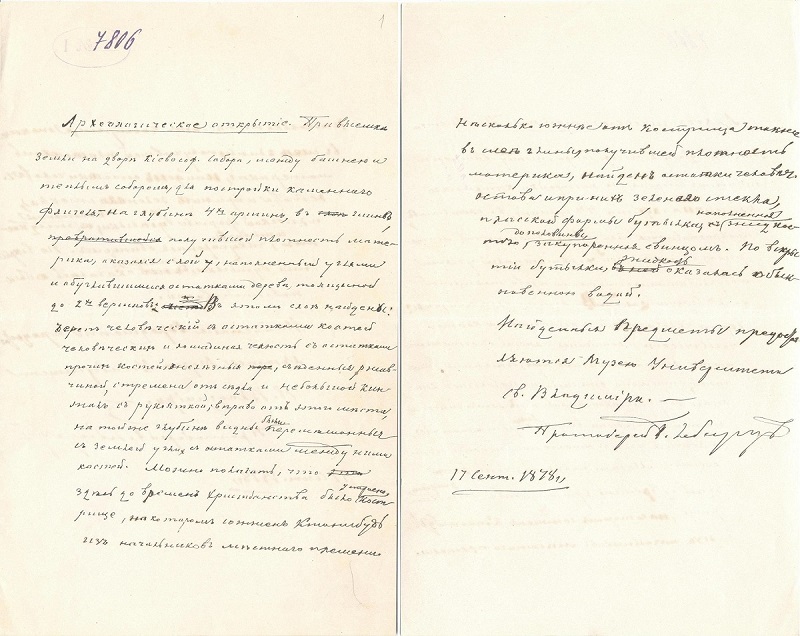 7806
1
Археологическое открытіе. При выемкѣ
земли на дворѣ Кіевософ. Собора, между башнею и
теплымъ соборомъ, для постройки каменнаго
флигеля, на глубинѣ 4хъ аршинъ, въ глинѣ,
превратившейся получившей плотность мате-
рика, оказался слой, наполненный углями
и обуглившимися остатками дерева, толщиною
до 2хъ вершковъ. Въ этомъ слоѣ найдены:
черепъ человѣческій съ остатками костей
человѣческихъ и лошадиная челюсть съ остатками
прочихъ костей, желѣзныя съѣденныя ржав-
чиной, стремена отъ сѣдла и небольшой кин-
жалъ съ рукояткой; вправо отъ этого мѣста,
на той же глубинѣ видны были перемѣшанныя
съ землей угли съ остатками между ними
костей. Можно полагать, что
устроено
здѣсь до временъ Христіанства было кост-
рище, на которомъ сожженъ кто нибудь
изъ начальниковъ мѣстнаго племени.
Нѣсколько южнѣе отъ кострища, также
въ глинѣ получившей плотность
материка, найденъ остатки человѣч.
остова и при нихъ зеленаго стекла,
плоской формы бутылка, наполненная
до половины, закупоренная свинцомъ. По вскры-
тіи бутылки, жидкость оказалась обык-
новенной водой.
Найденные предметы предостав-
ляются Музею Университета
св. Владиміра.
Протоіерей
17 Сент. 1878 г.